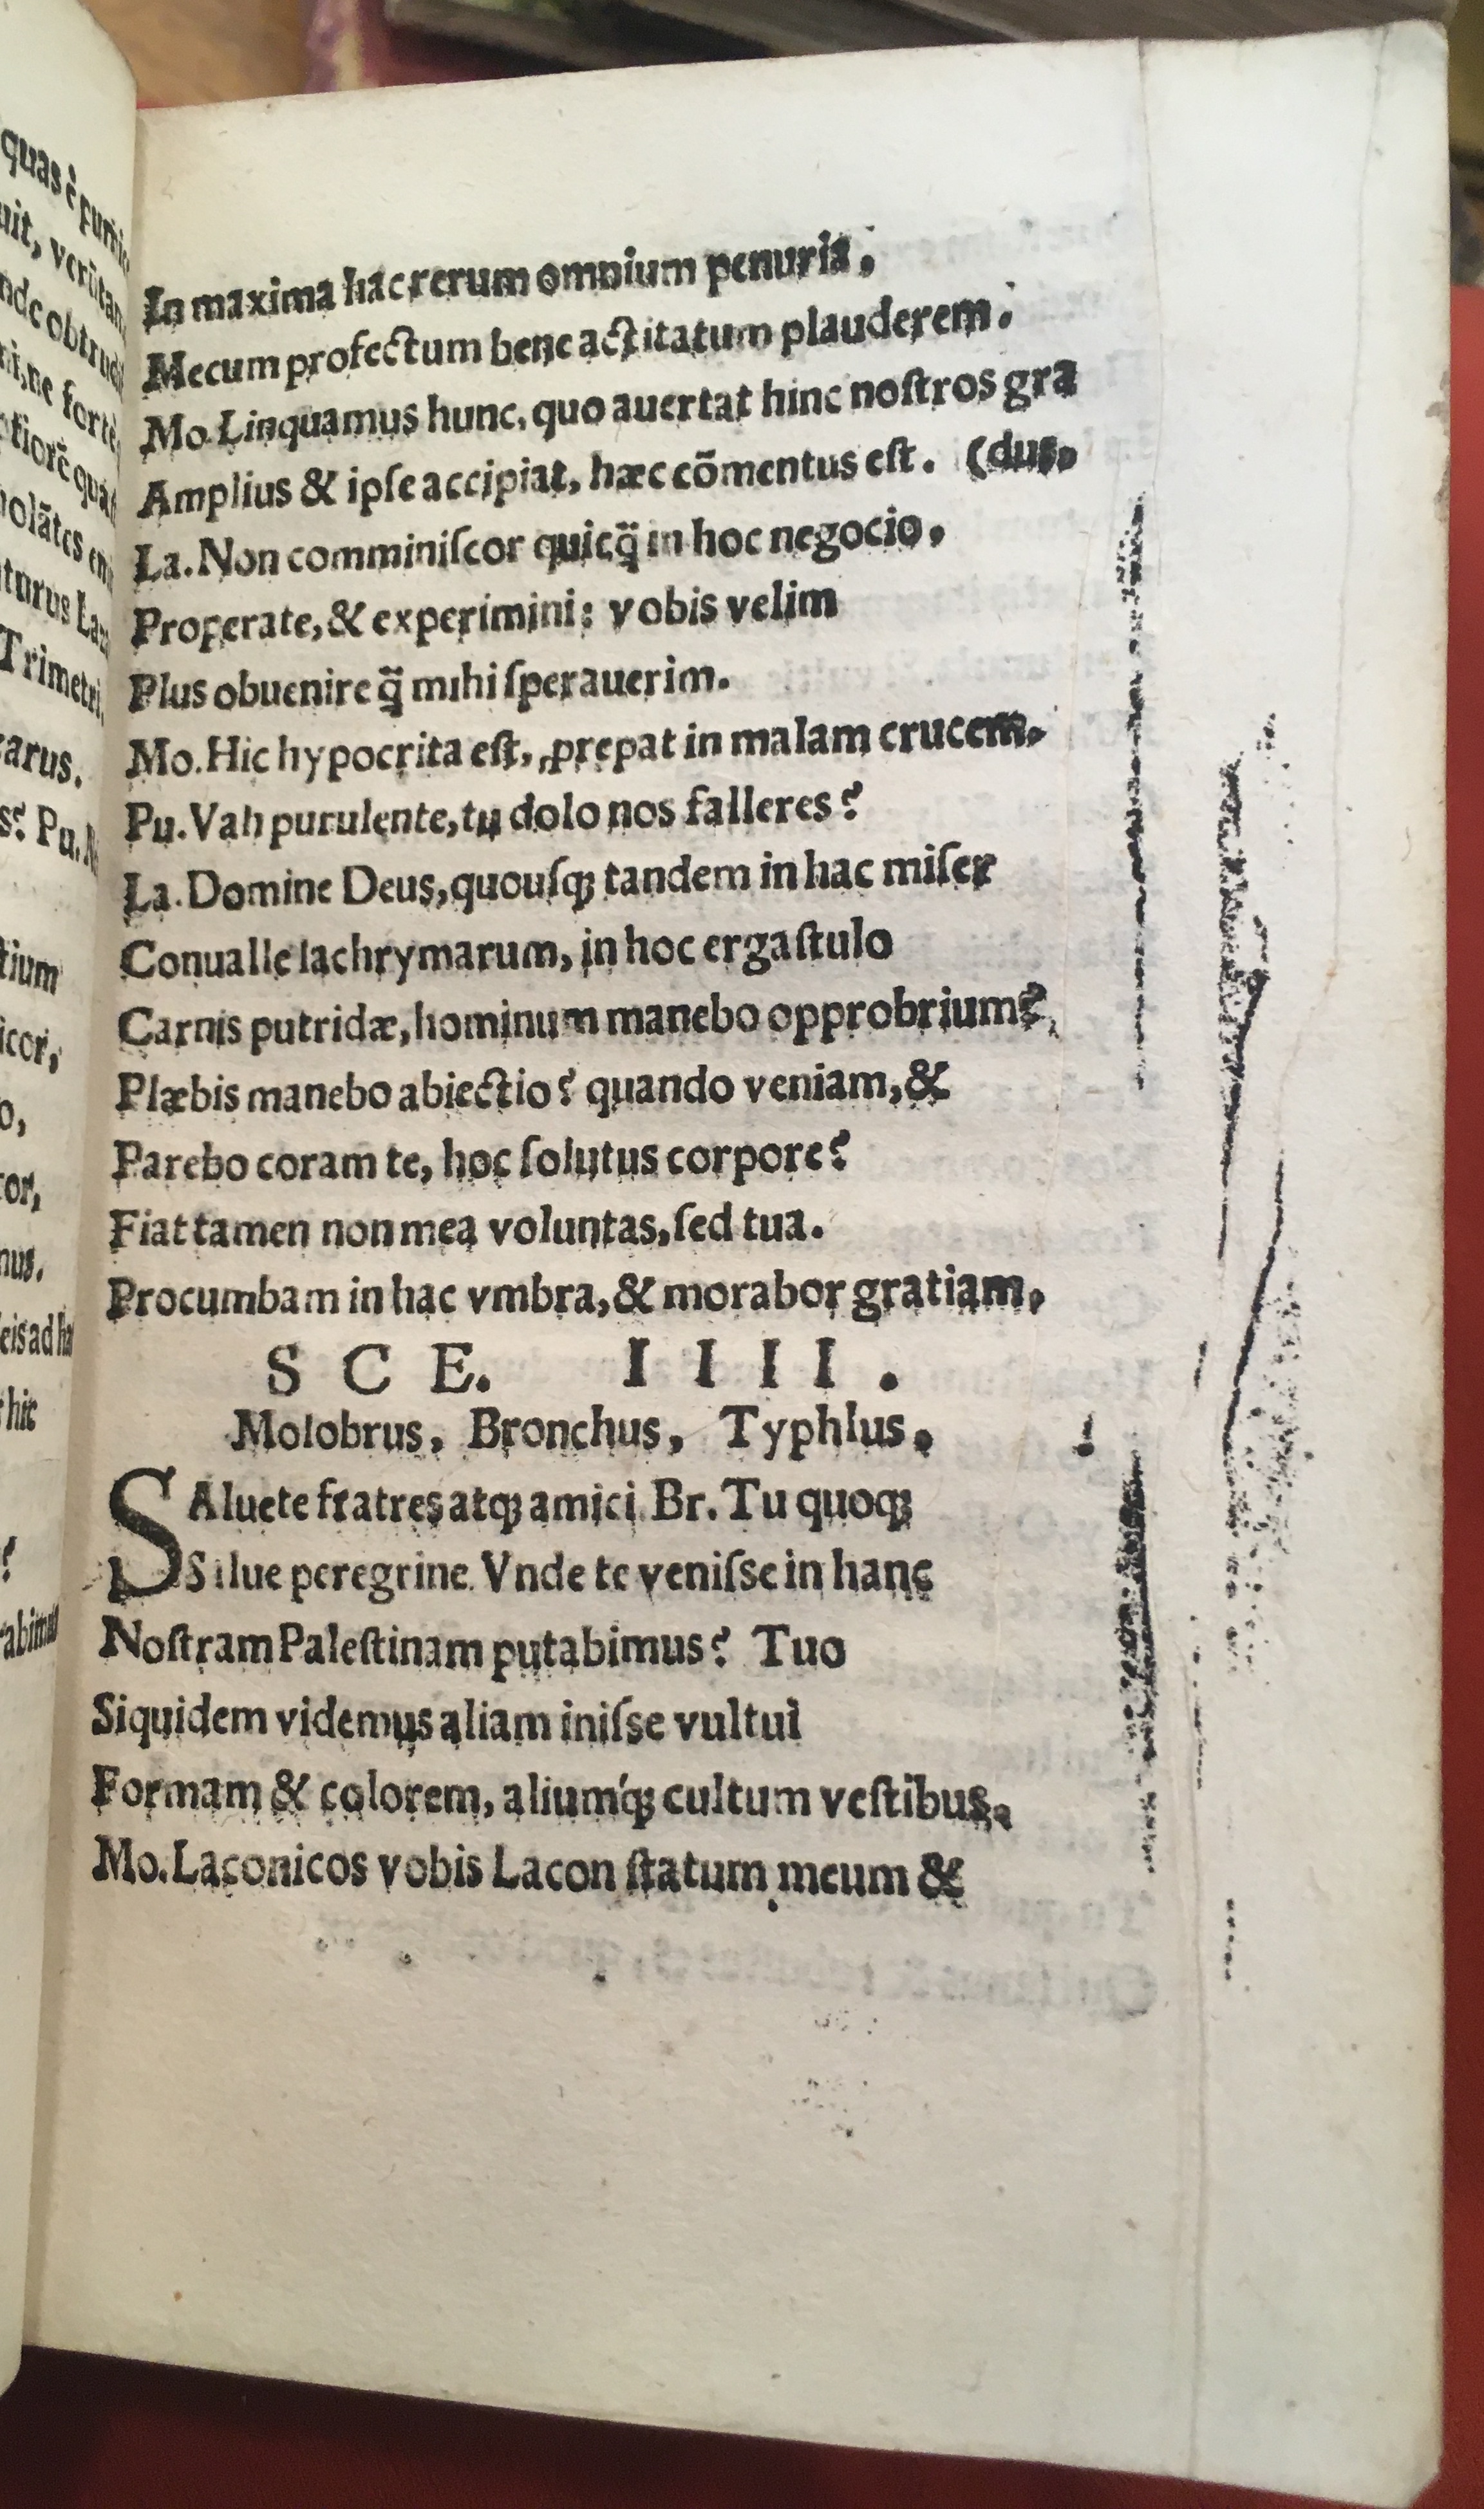 quas è pumic
uit, verūtam
nde obtrud
ni, ne fortè
tiorē quàm
holātes
turus Laz
Trimetri.
zarus.
s? Pu. N
tium
icor,
o,
tor,
nus.
eis ad ha
hic
?
rabimus
In maxima hac rerum omnium penuria,
Mecum profectum bene actitatum plauderem.
Mo. Linquamus hunc, quo auertat hinc noſtros gra
Amplius & ipſe accipiat, hæc cōmentus eſt. (dus.
La. Non comminiſcor quicq̃ in hoc negocio,
Properate, & experimini: vobis velim
Plus obuenire q̃ mihi ſperauerim.
Mo. Hic hypocrita eſt, ꝓrepat in malam crucem.
Pu. Vah purulente, tu dolo nos falleres?
La. Domine Deus, quouſqꝫ tandem in hac miſer
Conualle lachrymarum, in hoc ergaſtulo
Carnis putridæ, hominum manebo opprobrium?
Plæbis manebo abiectio? quando veniam, &
Parebo coram te, hoc ſolutus corpore?
Fiat tamen non mea voluntas, ſed tua.
Procumbam in hac vmbra, & morabor gratiam.
SCE. IIII.
Molobrus, Bronchus, Typhlus.
SAluete fratres atqꝫ amici. Br. Tu quoqꝫ
Salue peregrine. Vnde te veniſse in hanc
Noſtram Paleſtinam putabimus? Tuo
Siquidem videmus aliam iniſse vultui
Formam & colorem, aliumq́ꝫ cultum veſtibus.
Mo. Laconicos vobis Lacon ſtatum meum &